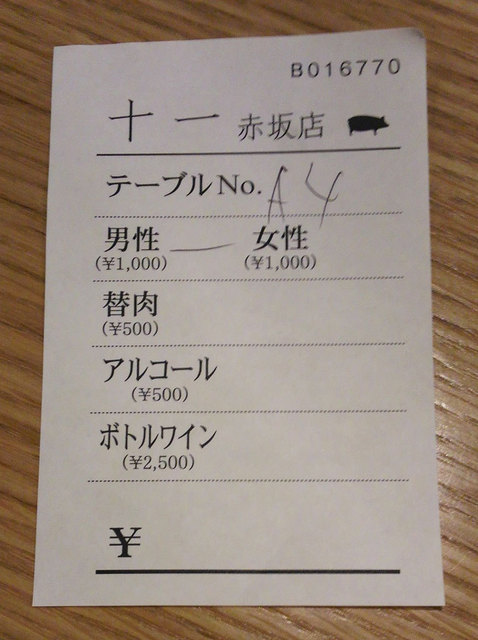 B016770
十一 赤坂店
テーブルNo. A4
男性 一 女性
(¥1,000) (¥1,000)
替肉
(¥500)
アルコール
(¥500)
ボトルワイン
(¥2,500)
¥